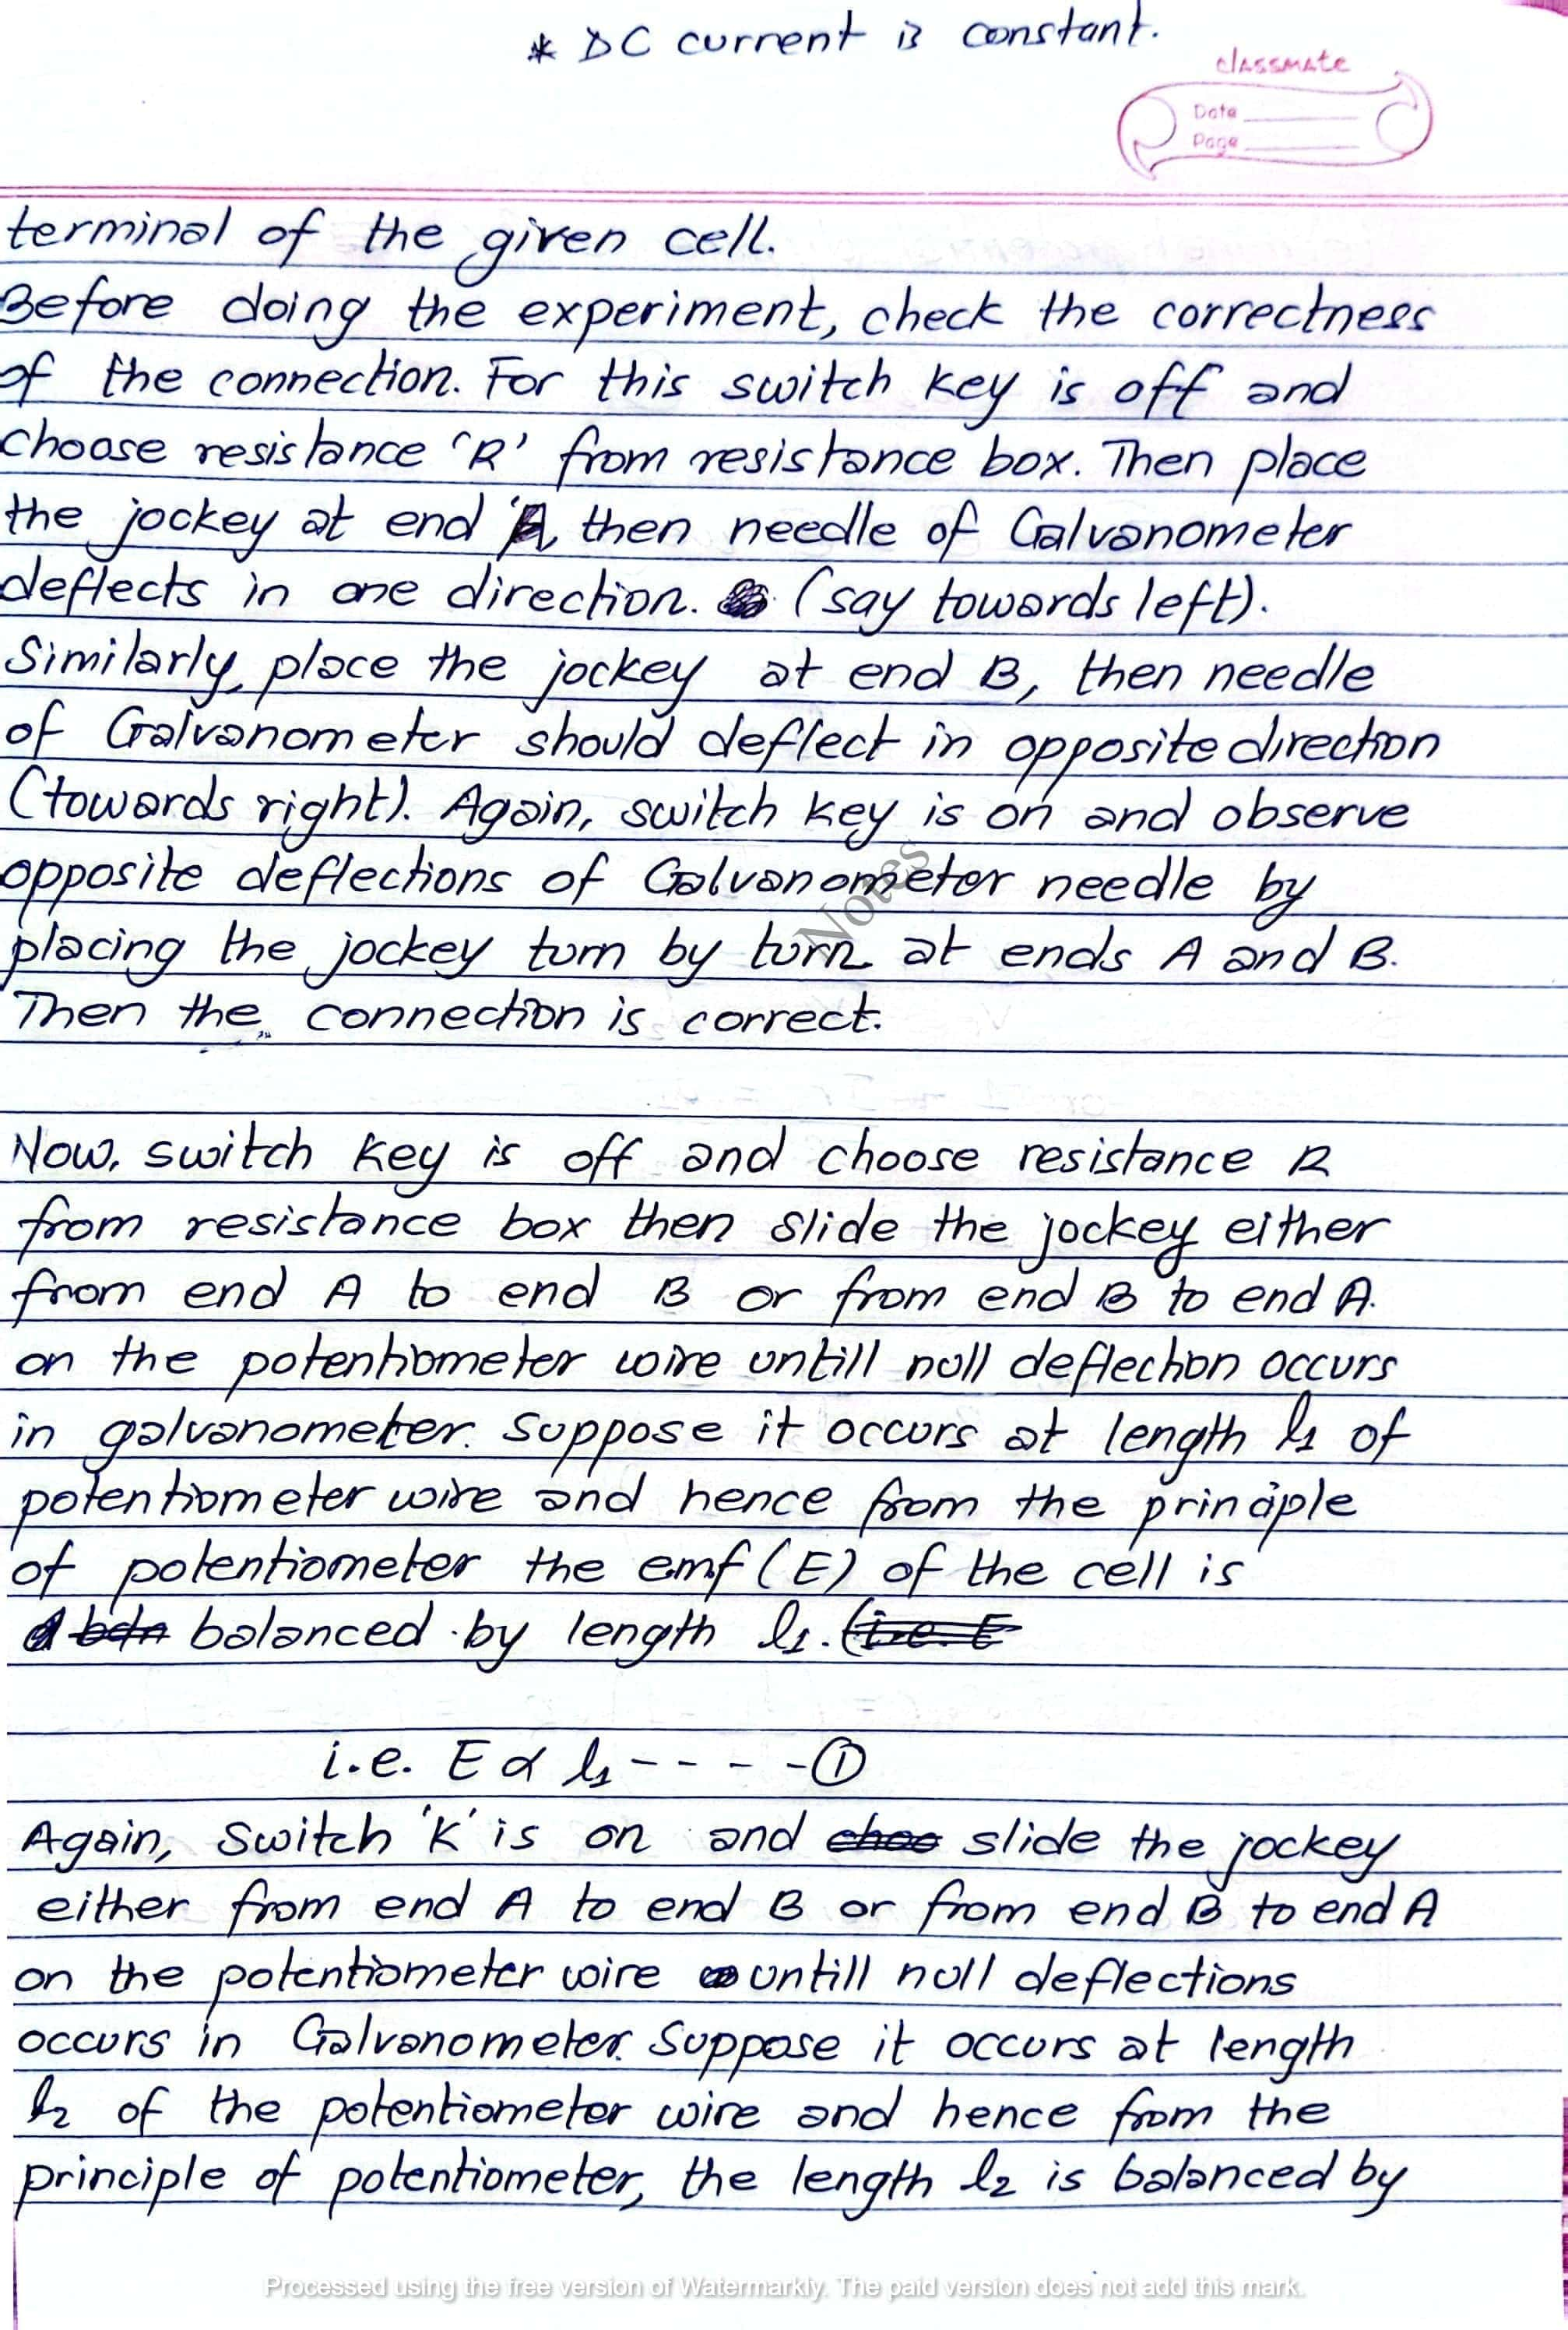 * DC current is constant.
classmate
Date
Page
terminal of the given cell.
Before doing the experiment, check the correctness
of the connection. For this switch key is off and
choose resistance 'R' from resistance box. Then place
the jockey at end 'A, then needle of Galvanometer
deflects in one direction. (say towards left).
Similarly, place the jockey at end B, then needle
of Galvanometer should deflect in opposite direction
(towards right). Again, switch key is on and observe
opposite deflections of Galvanometer needle by
placing the jockey turn by turn at ends A and B.
Then the connection is correct.
Notes
Now, switch key is off and choose resistance R
from resistance box then slide the jockey either
from end A to end B or from end B to end A.
on the potentiometer wire untill null deflection occurs
in galvanometer. Suppose it occurs at length l1 of
potentiometer wire and hence from the principle
of potentiometer the emf (E) of the cell is
balanced by length l1. (i.e. E
i.e. E ∝ l1 - - - - ①
Again, Switch 'K' is on and choo slide the jockey
either from end A to end B or from end B to end A
on the potentiometer wire untill null deflections
occurs in Galvanometer. Suppose it occurs at length
l2 of the potentiometer wire and hence from the
principle of potentiometer, the length l2 is balanced by
Processed using the free version of Watermarkly. The paid version does not add this mark.